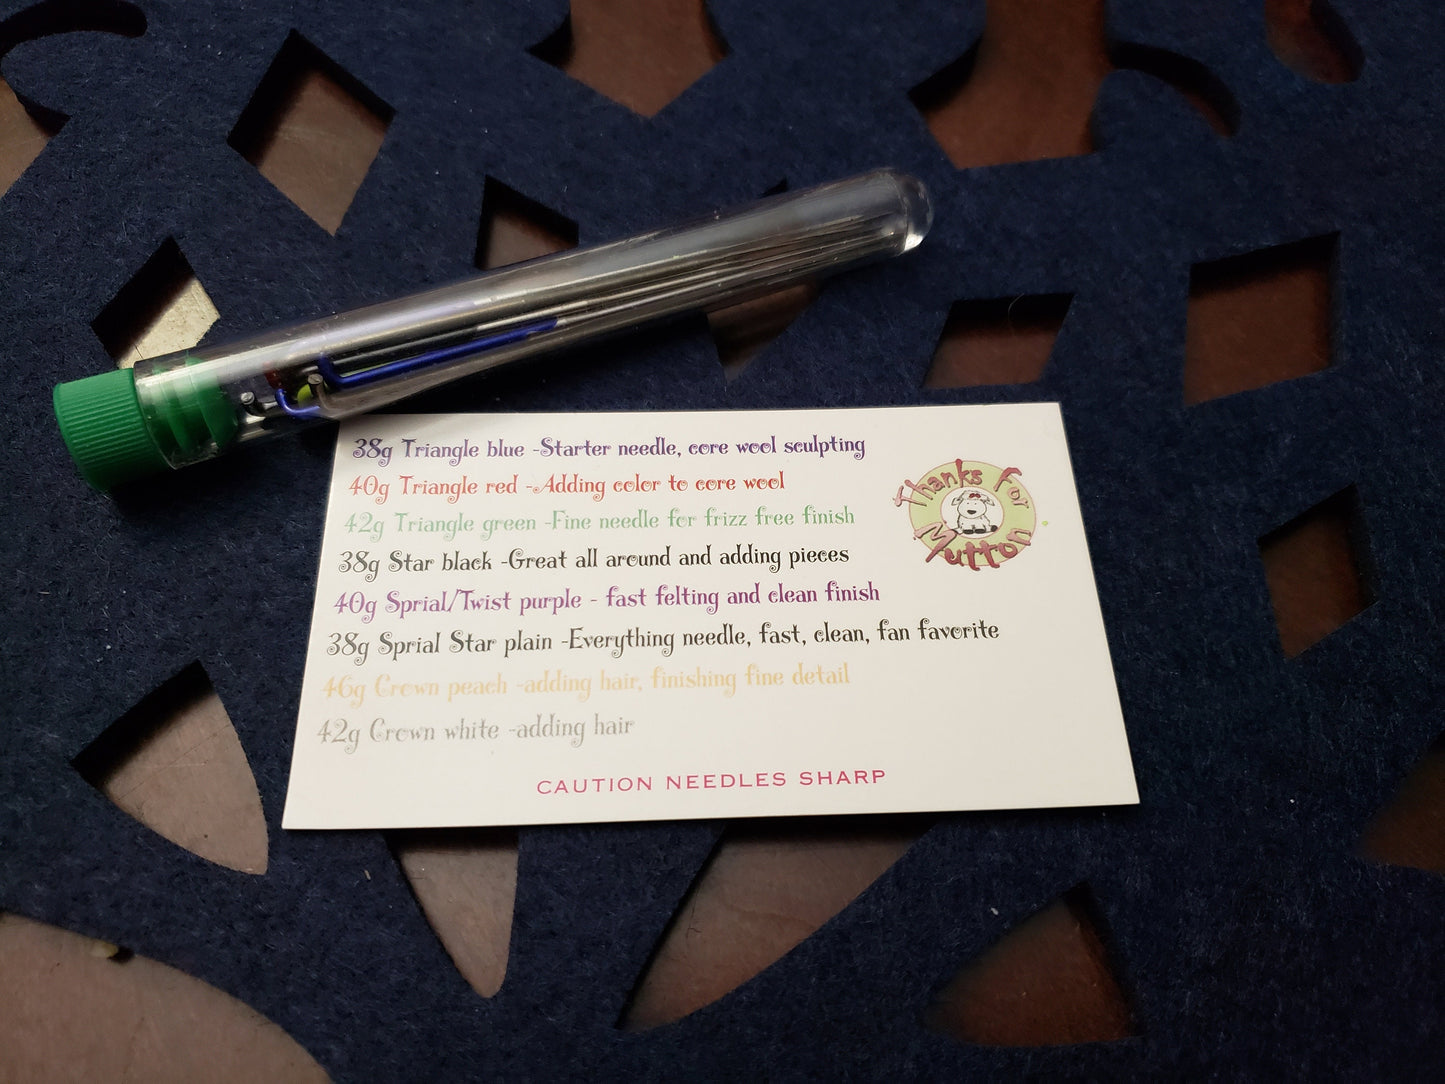 38g Triangle blue -Starter needle, core wool sculpting
40g Triangle red -Adding color to core wool
42g Triangle green -Fine needle for frizz free finish
38g Star black -Great all around and adding pieces
40g Sprial/Twist purple - fast felting and clean finish
38g Sprial Star plain -Everything needle, fast, clean, fan favorite
46g Crown peach -adding hair, finishing fine detail
42g Crown white -adding hair
CAUTION NEEDLES SHARP
Thanks For
Mutton